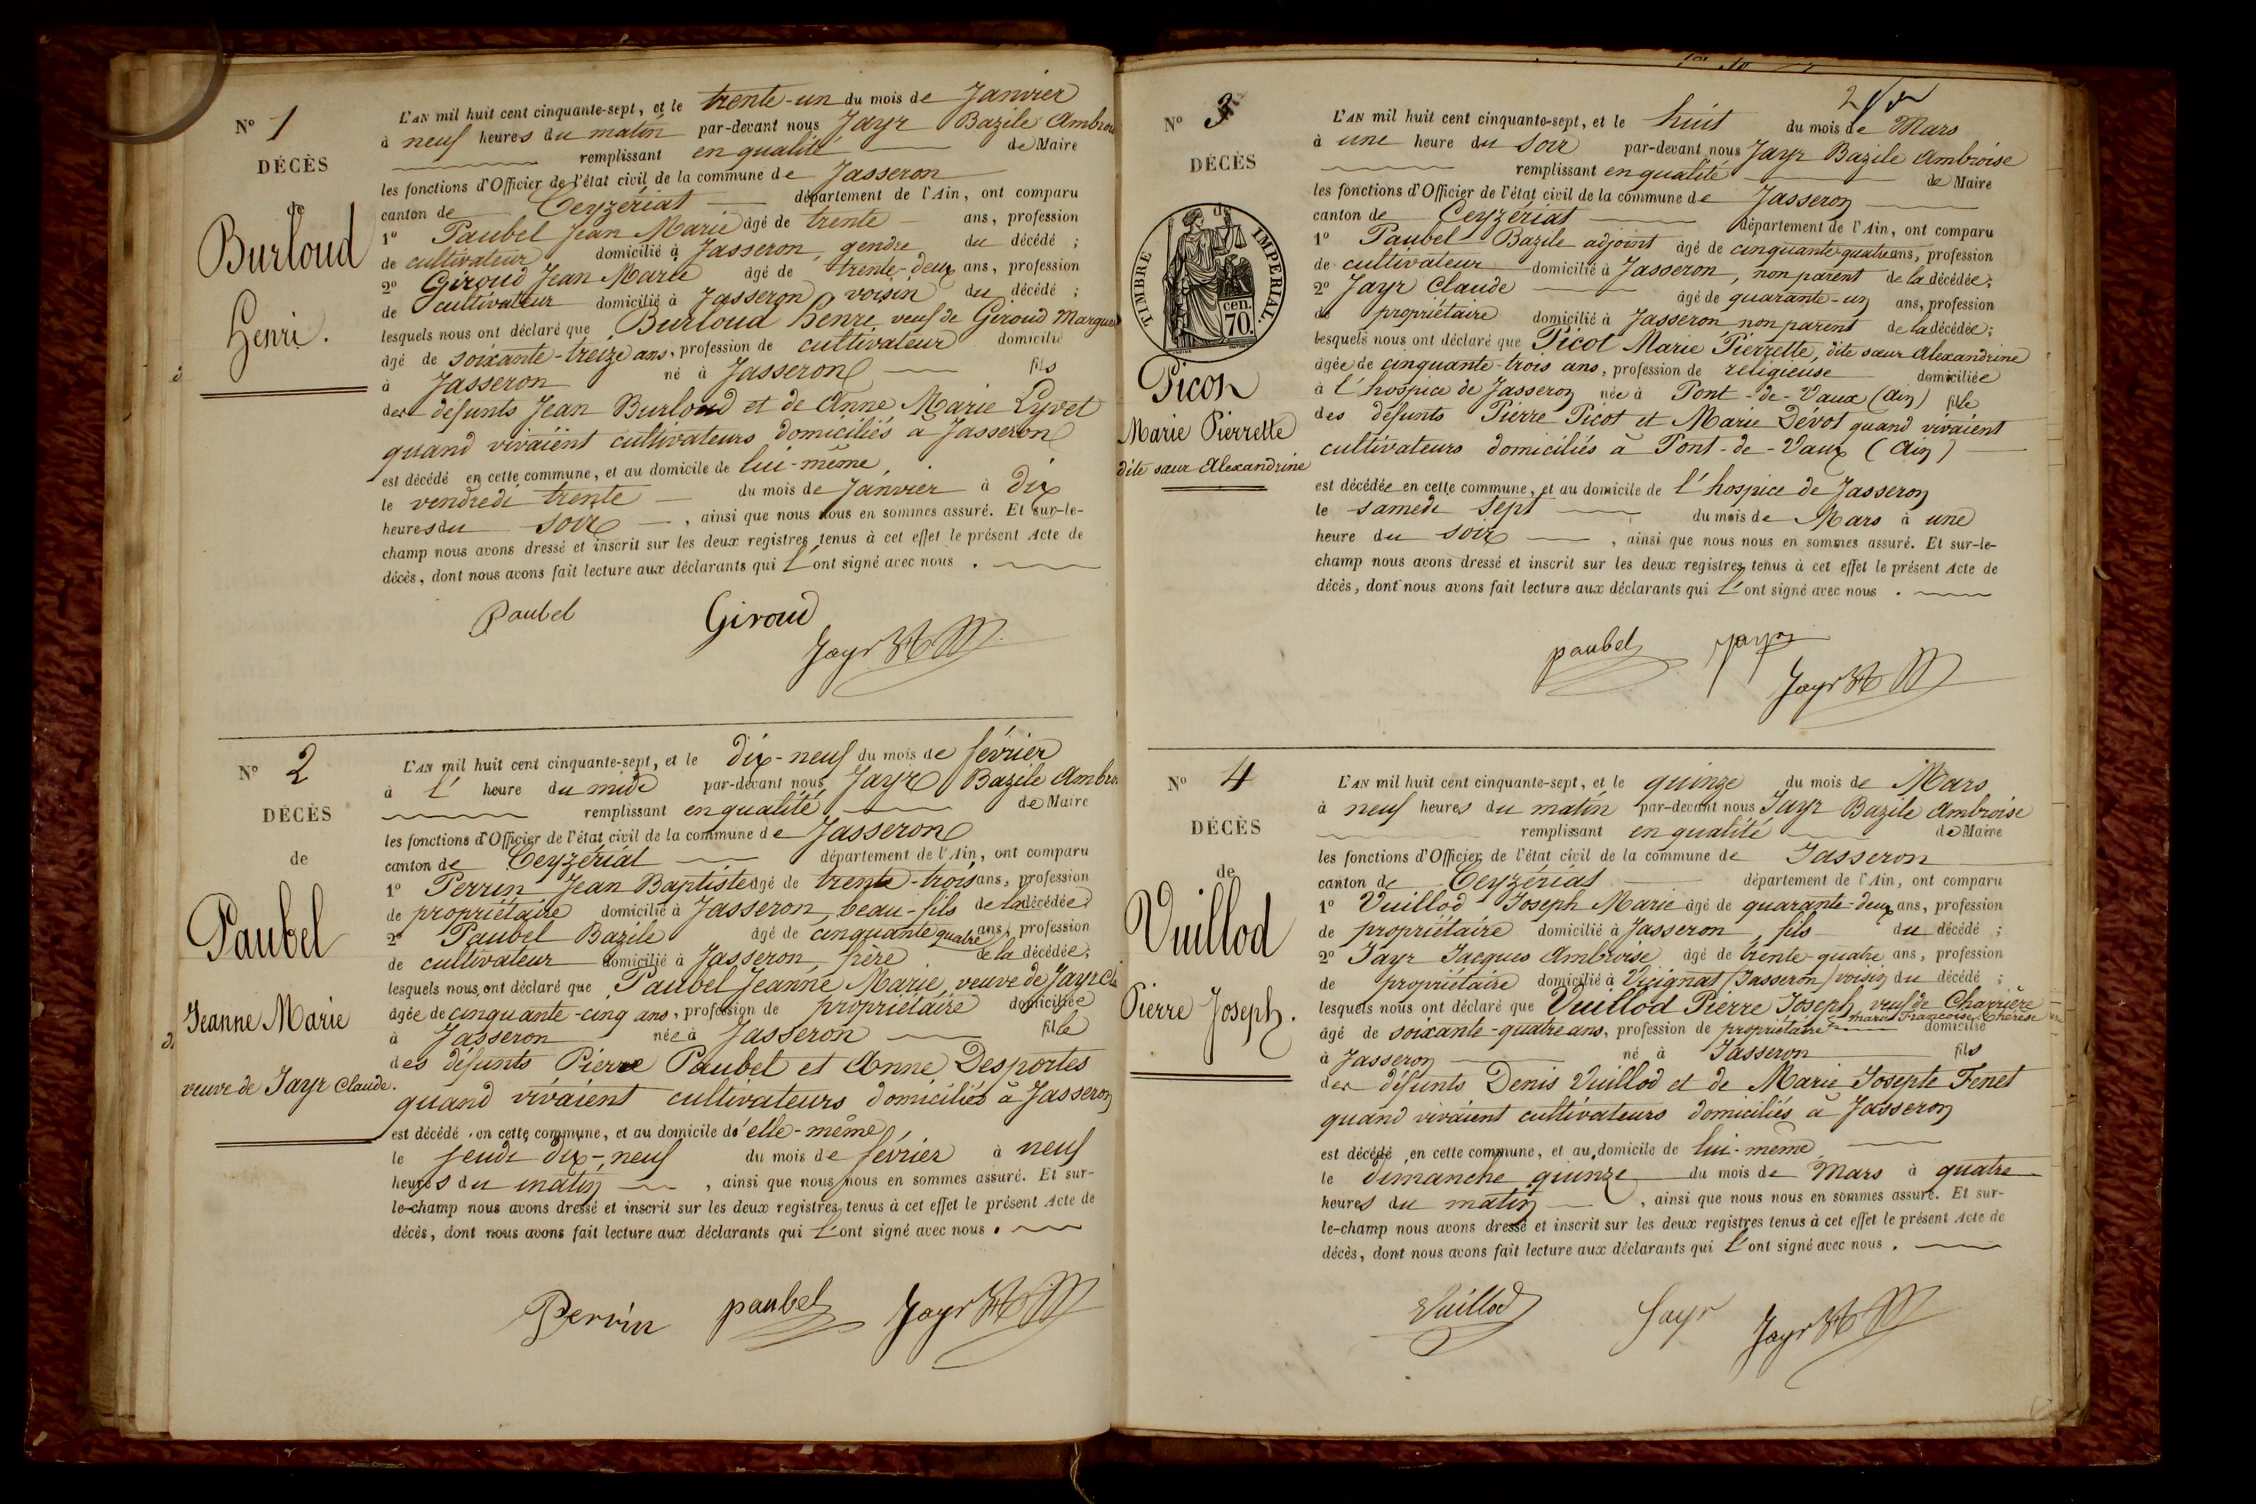 N° 1
DÉCÈS
de
Burloud
Henri.
L'AN mil huit cent cinquante-sept, et le trente-un du mois de Janvier
à neuf heures du matin par-devant nous Jayr Bazile Ambroi
remplissant en qualité de Maire
les fonctions d'Officier de l'état civil de la commune de Jasseron
canton de Ceyzériat département de l'Ain, ont comparu
1° Paubel Jean Marie âgé de trente ans, profession
de cultivateur domicilié à Jasseron, gendre du décédé ;
2° Giroud Jean Marie âgé de trente-deux ans, profession
de cultivateur domicilié à Jasseron voisin du décédé ;
lesquels nous ont déclaré que Burloud henri veuf de Giroud Margue
âgé de soixante-treize ans, profession de cultivateur domicilié
à Jasseron né à Jasseron fils
des défunts Jean Burloud et de Anne Marie Lyvet
quand vivaient cultivateurs domiciliés à Jasseron
est décédé en cette commune, et au domicile de lui-même,
le vendredi trente du mois de Janvier à dix
heures du soir , ainsi que nous nous en sommes assuré. Et sur-le-
champ nous avons dressé et inscrit sur les deux registres tenus à cet effet le présent Acte de
décès, dont nous avons fait lecture aux déclarants qui l'ont signé avec nous .
Paubel Giroud
Jayr
N° 2
DÉCÈS
de
Paubel
Jeanne Marie
veuve de Jayr Claude.
L'AN mil huit cent cinquante-sept, et le dix-neuf du mois de février
à l' heure du midi par-devant nous Jayr Bazile Ambro
remplissant en qualité de Maire
les fonctions d'Officier de l'état civil de la commune de Jasseron
canton de Ceyzériat département de l'Ain, ont comparu
1° Perrin Jean Baptiste âgé de trente-trois ans, profession
de propriétaire domicilié à Jasseron, beau-fils de la décédée ;
2° Paubel Bazile âgé de cinquante quatre ans, profession
de cultivateur domicilié à Jasseron frère de la décédée ;
lesquels nous ont déclaré que Paubel Jeanne Marie, veuve de Jayr Cl
âgée de cinquante-cinq ans, profession de propriétaire domiciliée
à Jasseron née à Jasseron fille
des défunts Pierre Paubel et Anne Desportes
quand vivaient cultivateurs domiciliés à Jasseron
est décédé en cette commune, et au domicile d'elle-même,
le jeudi dix-neuf du mois de février à neuf
heures du matin , ainsi que nous nous en sommes assuré. Et sur-
le-champ nous avons dressé et inscrit sur les deux registres tenus à cet effet le présent Acte de
décès, dont nous avons fait lecture aux déclarants qui l'ont signé avec nous .
Perrin paubel Jayr
N° 3
DÉCÈS
de
TIMBRE IMPÉRIAL.
cen.
70.
Picot
Marie Pierrette
dite sœur Alexandrine
L'AN mil huit cent cinquante-sept, et le huit du mois de Mars
à une heure du soir par-devant nous Jayr Bazile Ambroise
remplissant en qualité de Maire
les fonctions d'Officier de l'état civil de la commune de Jasseron
canton de Ceyzériat département de l'Ain, ont comparu
1° Paubel Bazile adjoint âgé de cinquante-quatre ans, profession
de cultivateur domicilié à Jasseron, non parent de la décédée ;
2° Jayr Claude âgé de quarante-un ans, profession
de propriétaire domicilié à Jasseron non parent de la décédée ;
lesquels nous ont déclaré que Picot Marie Pierrette, dite sœur Alexandrine
âgée de cinquante-trois ans, profession de religieuse domiciliée
à l'hospice de Jasseron née à Pont-de-Vaux (Ain) fille
des défunts Pierre Picot et Marie Dévot quand vivaient
cultivateurs domiciliés à Pont-de-Vaux (Ain)
est décédée en cette commune, et au domicile de l'hospice de Jasseron
le samedi sept du mois de Mars à une
heure du soir , ainsi que nous nous en sommes assuré. Et sur-le-
champ nous avons dressé et inscrit sur les deux registres tenus à cet effet le présent Acte de
décès, dont nous avons fait lecture aux déclarants qui l'ont signé avec nous .
paubel Jayr
Jayr
N° 4
DÉCÈS
de
Vuillod
Pierre Joseph.
L'AN mil huit cent cinquante-sept, et le quinze du mois de Mars
à neuf heures du matin par-devant nous Jayr Bazile Ambroise
remplissant en qualité de Maire
les fonctions d'Officier de l'état civil de la commune de Jasseron
canton de Ceyzériat département de l'Ain, ont comparu
1° Vuillod Joseph Marie âgé de quarante-deux ans, profession
de propriétaire domicilié à Jasseron, fils du décédé ;
2° Jayr Jacques Ambroise âgé de trente-quatre ans, profession
de propriétaire domicilié à Vicignat (Jasseron) voisin du décédé ;
lesquels nous ont déclaré que Vuillod Pierre Joseph veuf de Charrière
Marie Françoise Thérèse
âgé de soixante-quatre ans, profession de propriétaire domicilié
à Jasseron né à Jasseron fils
des défunts Denis Vuillod et de Marie Josepte Fenet
quand vivaient cultivateurs domiciliés à Jasseron
est décédé en cette commune, et au domicile de lui-même
le dimanche quinze du mois de Mars à quatre
heures du matin , ainsi que nous nous en sommes assuré. Et sur-
le-champ nous avons dressé et inscrit sur les deux registres tenus à cet effet le présent Acte de
décès, dont nous avons fait lecture aux déclarants qui l'ont signé avec nous .
Vuillod Jayr Jayr